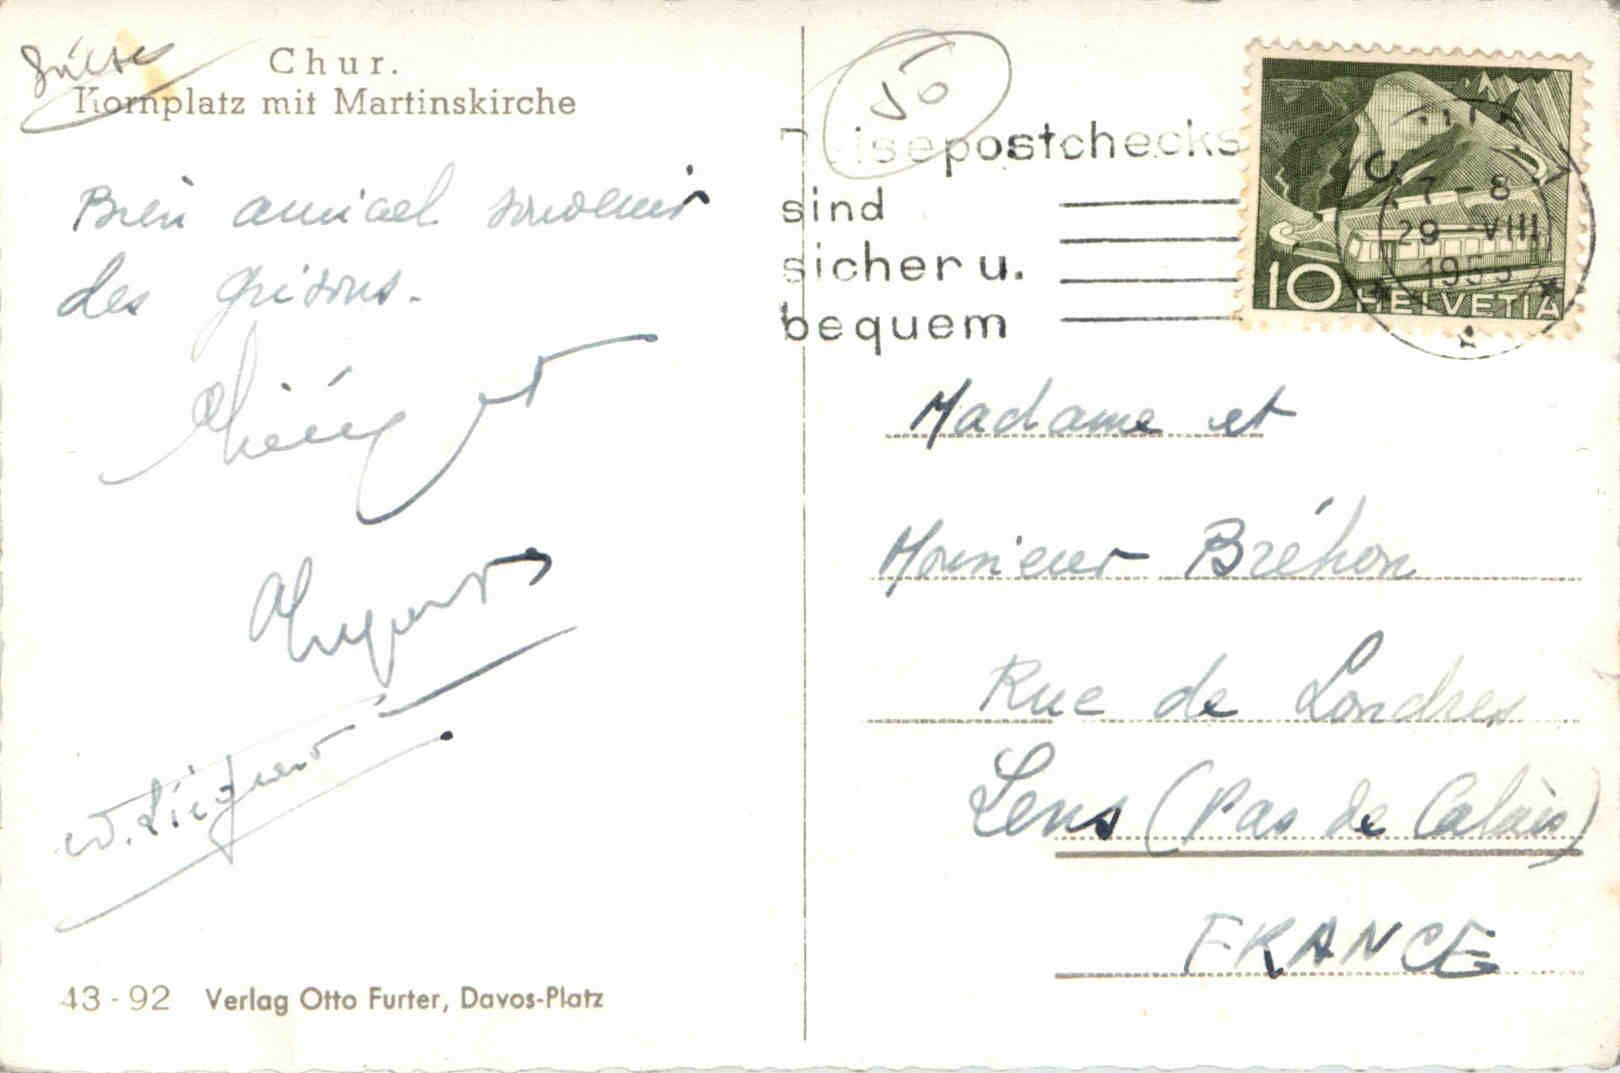 Suisse
Chur.
Kornplatz mit Martinskirche
Bien amical souvenir
des Grisons.
43-92 Verlag Otto Furter, Davos-Platz
50
isepostchecks
sind
sicher u.
bequem
7-8
29-VIII
1955
10 HELVETIA
Madame et
Monsieur Bréhon
Rue de Londres
Lens (Pas de Calais)
FRANCE